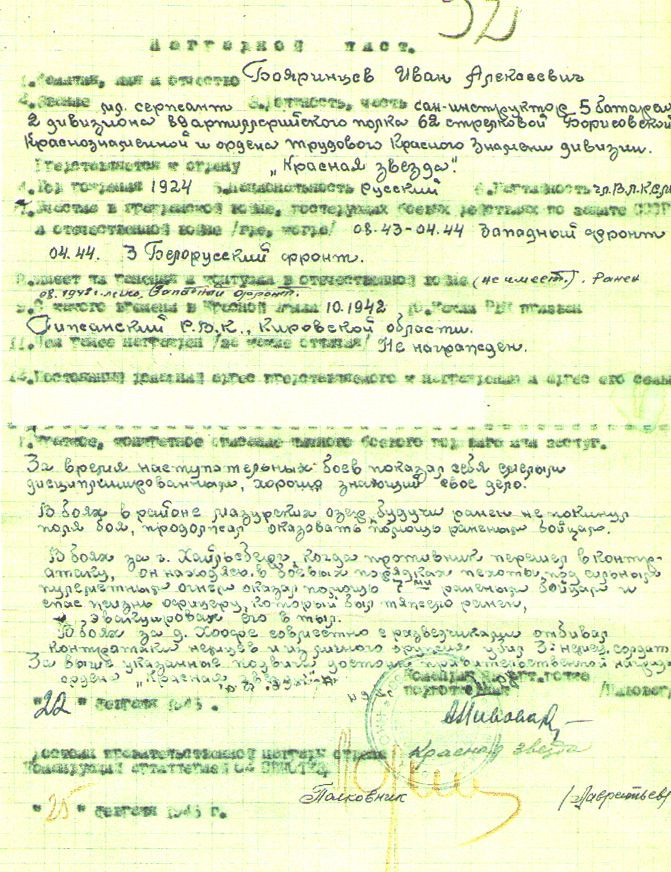 52
Наградной лист.
1. Фамилия, имя и отчество Бояринцев Иван Алексеевич
2. Звание мл. сержант 3. Должность, часть сан-инструктор 5 батареи
2 дивизиона артиллерийского полка 62 стрелковой Борисовской
Краснознаменной и ордена Трудового Красного Знамени дивизии.
Представляется к ордену "Красная звезда".
4. Год рождения 1924 5. Национальность русский 6. Партийность чл. ВЛКСМ
7. Участие в гражданской войне, последующих боевых действиях по защите СССР
и отечественной войне /где, когда/ 08.43-04.44 Западный фронт
04.44. 3 Белорусский фронт.
8. Имеет ли ранения и контузии в отечественной войне (не имеет). Ранен
08.1943г. легко, Западный фронт.
9. С какого времени в Красной Армии 10.1942 10. Каким РВК призван
Р.В.К., Кировской области.
11. Чем ранее награжден /за какие отличия/ Не награжден.
12. Постоянный домашний адрес представляемого к награждению и адрес его семьи
1. Краткое, конкретное описание личного боевого подвига или заслуг.
За время наступательных боев показал себя смелым
дисциплинированным, хорошо знающий свое дело.
В боях в районе Мазурских озер будучи ранен не покинул
поля боя, продолжал оказовать помощь раненым бойцам.
В боях за г. Хайльсберг, когда противник перешел в контр-
атаку, он находясь в боевых порядках пехоты, под сильным
пулеметным огнем оказал помощь 7-ми раненым бойцам и
спас жизнь офицеру, который был тяжело ранен,
эвакуировав его в тыл.
В боях за д. совместно с разведчиками отбивал
контратаки немцев и из личного оружия убил 3-немец. солдат
За выше указанные подвиги достоин правительственной награды
ордена "Красная звезда".
"22" февраля 1945 г.
Достоин правительственной награды ордена Красная звезда
Командующий артиллерией
Полковник /Лаврентьев/
"25" февраля 1945 г.